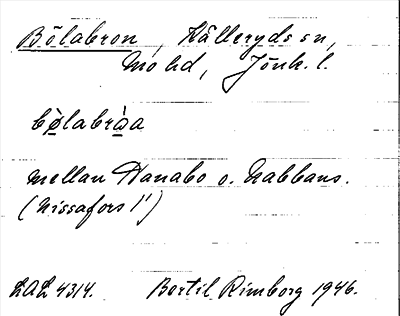 Bölabron, Källeryds sn,
Mo hd, Jönk. l.
bø̀labròa
mellan Hanabo o. Nabbans.
(Nissafors 1")
LAL 4314. Bertil Rimborg 1946.